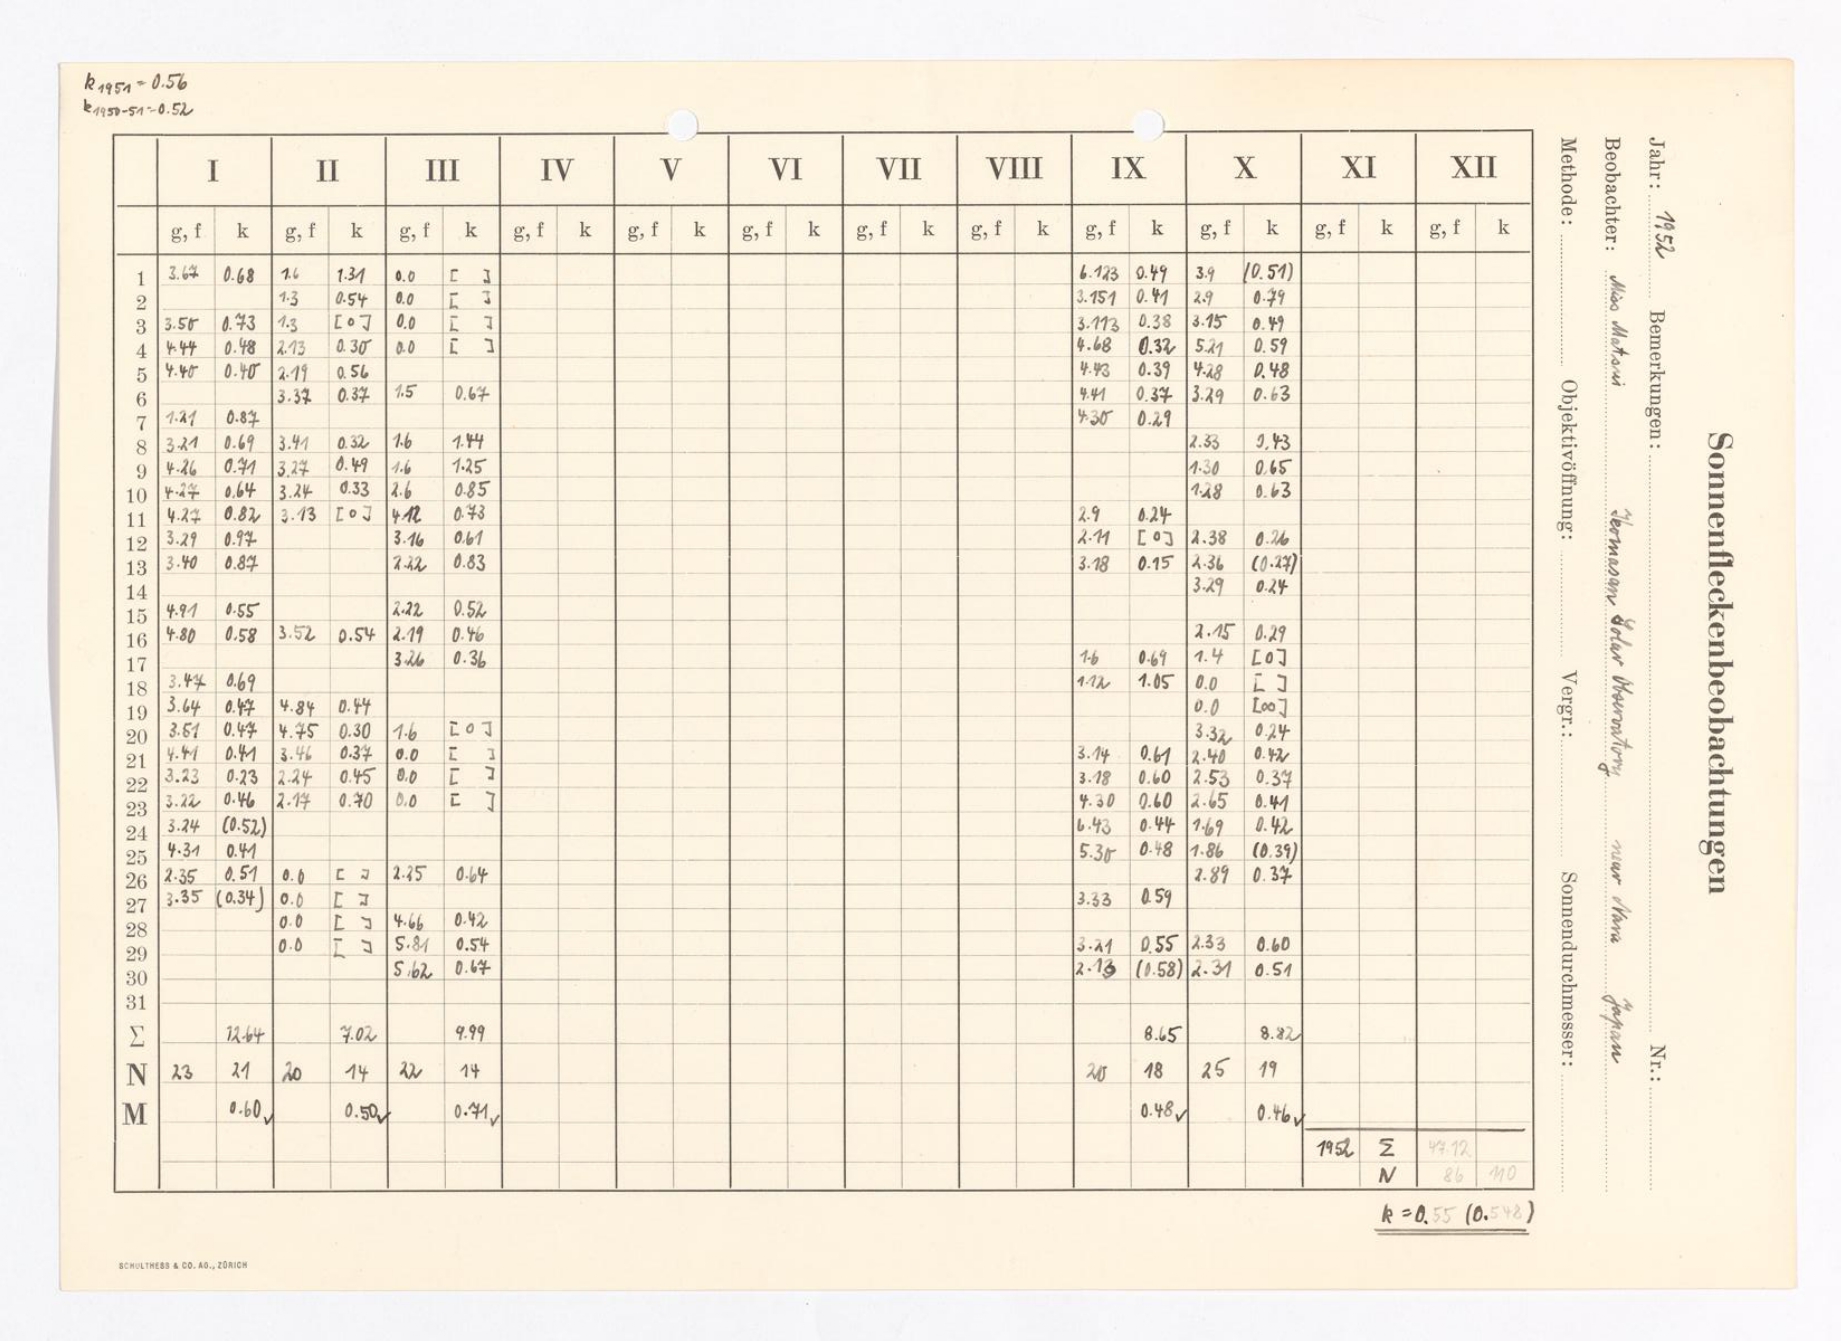 k1951 = 0.56
k1950-51 = 0.52
Sonnenfleckenbeobachtungen
Jahr: 1952 Bemerkungen: Nr.:
Beobachter: Miss Matsui Solar Observatory near Nara Japan
Methode: Objektivöffnung: Vergr.: Sonnendurchmesser:
I II III IV V VI VII VIII IX X XI XII
g, f k g, f k g, f k g, f k g, f k g, f k g, f k g, f k g, f k g, f k g, f k g, f k
1 3.67 0.68 1.6 1.31 0.0 [ ] 6.123 0.49 3.9 (0.51)
2 1.3 0.54 0.0 [ ] 3.151 0.41 2.9 0.79
3 3.50 0.73 1.3 [0] 0.0 [ ] 3.113 0.38 3.15 0.49
4 4.44 0.48 2.13 0.30 0.0 [ ] 4.68 0.32 5.21 0.59
5 4.40 0.40 2.19 0.56 4.43 0.39 4.28 0.48
6 3.37 0.37 1.5 0.67 4.41 0.37 3.29 0.63
7 1.21 0.87 4.30 0.29
8 3.21 0.69 3.41 0.32 1.6 1.44 2.33 0.43
9 4.26 0.71 3.27 0.49 1.6 1.25 1.30 0.65
10 4.27 0.64 3.24 0.33 2.6 0.85 1.28 0.63
11 4.27 0.82 3.13 [0] 4.12 0.73 2.9 0.24
12 3.29 0.97 3.16 0.61 2.11 [0] 2.38 0.26
13 3.40 0.87 2.22 0.83 3.18 0.15 2.36 (0.27)
14 3.29 0.24
15 4.91 0.55 2.22 0.52
16 4.80 0.58 3.52 0.54 2.19 0.46 2.15 0.29
17 3.26 0.36 1.6 0.69 1.4 [0]
18 3.47 0.69 1.12 1.05 0.0 [ ]
19 3.64 0.47 4.84 0.44 0.0 [∞]
20 3.51 0.47 4.75 0.30 1.6 [0] 3.32 0.24
21 4.41 0.41 3.46 0.37 0.0 [ ] 3.14 0.61 2.40 0.42
22 3.23 0.23 2.24 0.45 0.0 [ ] 3.18 0.60 2.53 0.37
23 3.22 0.46 2.17 0.70 0.0 [ ] 4.30 0.60 2.65 0.41
24 3.24 (0.52) 6.43 0.44 1.69 0.42
25 4.31 0.41 5.30 0.48 1.86 (0.39)
26 2.35 0.51 0.0 [ ] 2.25 0.64 2.89 0.37
27 3.35 (0.34) 0.0 [ ] 3.33 0.59
28 0.0 [ ] 4.66 0.42
29 0.0 [ ] 5.81 0.54 3.21 0.55 2.33 0.60
30 5.62 0.67 2.13 (0.58) 2.31 0.51
31
Σ 12.64 7.02 9.99 8.65 8.82
N 23 21 20 14 22 14 20 18 25 19
M 0.60✓ 0.50✓ 0.71✓ 0.48✓ 0.46✓
1952 Σ 47.12
N 86 110
k = 0.55 (0.548)
SCHULTHESS & CO. AG., ZÜRICH